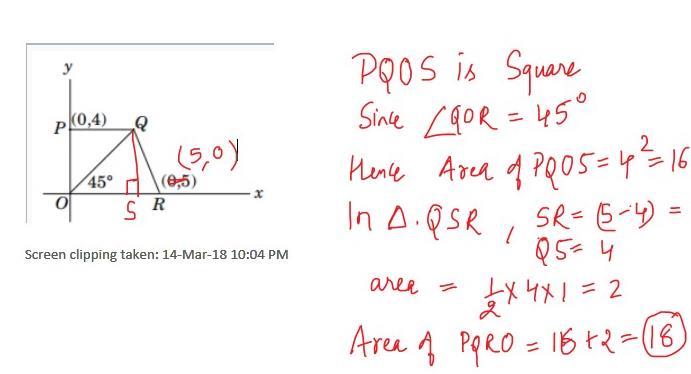 y
P (0,4) Q
(5,0)
45° (0,5)
O S R x
Screen clipping taken: 14-Mar-18 10:04 PM
PQOS is Square
Since ∠QOR = 45°
Hence Area of PQOS = 4² = 16
In Δ. QSR, SR = (5-4) =
QS = 4
area = 1/2 x 4 x 1 = 2
Area of PQRO = 16 + 2 = 18